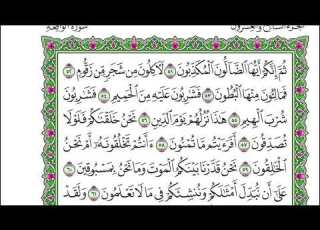 الجزء السابع والعشرون سورة الواقعة
ثُمَّ إِنَّكُمْ أَيُّهَا ٱلضَّآلُّونَ ٱلْمُكَذِّبُونَ ٥١ لَءَاكِلُونَ مِن شَجَرٍ مِّن زَقُّومٍ ٥٢
فَمَالِـُٔونَ مِنْهَا ٱلْبُطُونَ ٥٣ فَشَٰرِبُونَ عَلَيْهِ مِنَ ٱلْحَمِيمِ ٥٤ فَشَٰرِبُونَ
شُرْبَ ٱلْهِيمِ ٥٥ هَٰذَا نُزُلُهُمْ يَوْمَ ٱلدِّينِ ٥٦ نَحْنُ خَلَقْنَٰكُمْ فَلَوْلَا
تُصَدِّقُونَ ٥٧ أَفَرَءَيْتُم مَّا تُمْنُونَ ٥٨ ءَأَنتُمْ تَخْلُقُونَهُۥٓ أَمْ نَحْنُ
ٱلْخَٰلِقُونَ ٥٩ نَحْنُ قَدَّرْنَا بَيْنَكُمُ ٱلْمَوْتَ وَمَا نَحْنُ بِمَسْبُوقِينَ ٦٠
عَلَىٰٓ أَن نُّبَدِّلَ أَمْثَٰلَكُمْ وَنُنشِئَكُمْ فِى مَا لَا تَعْلَمُونَ ٦١ وَلَقَدْ